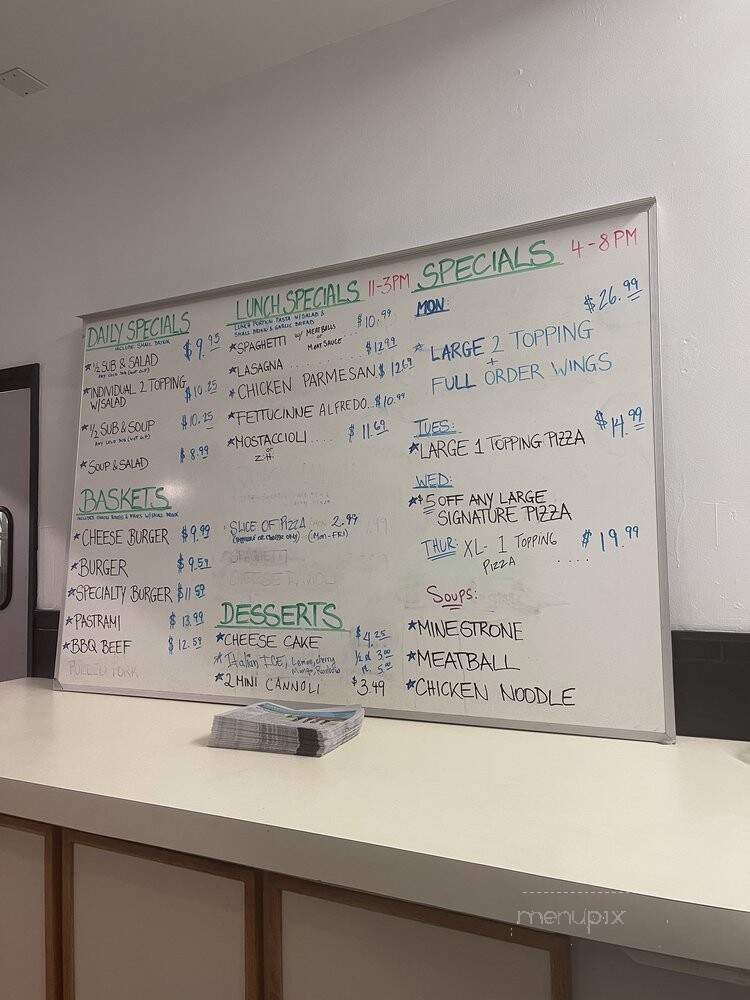 DAILY SPECIALS
INCLUDE SMALL DRINK
* ½ SUB & SALAD $9.95
ANY COLD SUB (NOT G.F)
* INDIVIDUAL 2 TOPPING $10.25
W/SALAD
* ½ SUB & SOUP $10.25
ANY COLD SUB (NOT G.F)
* SOUP & SALAD $8.99
BASKETS
* CHEESE BURGER $9.99
* BURGER $9.59
* SPECIALTY BURGER $11.59
* PASTRAMI $13.99
* BBQ BEEF $12.59
PULLED PORK
LUNCH SPECIALS 11-3PM
LUNCH PORTION PASTA W/SALAD &
SMALL DRINK & GARLIC BREAD
* SPAGHETTI W/ MEATBALLS $10.99
OR MEAT SAUCE
* LASAGNA $12.99
* CHICKEN PARMESAN $12.69
* FETTUCINNE ALFREDO... $10.99
* MOSTACCIOLI .... $11.69
OR
ZITI
SLICE OF PIZZA 2.99
(PEPPERONI OR CHEESE ONLY) (MON-FRI)
SPAGHETTI
DESSERTS
* CHEESE CAKE $4.25
* Italian ICE, Lemon, cherry ½ pt 3.00
Mango, Rainbow pt. 5.00
* 2 MINI CANNOLI $3.49
SPECIALS 4-8PM
MON: $26.99
* LARGE 2 TOPPING
+
FULL ORDER WINGS
TUES: $14.99
* LARGE 1 TOPPING PIZZA
WED:
* $5 OFF ANY LARGE
SIGNATURE PIZZA
THUR: XL- 1 TOPPING $19.99
PIZZA ....
Soups:
* MINESTRONE
* MEATBALL
* CHICKEN NOODLE
menupix